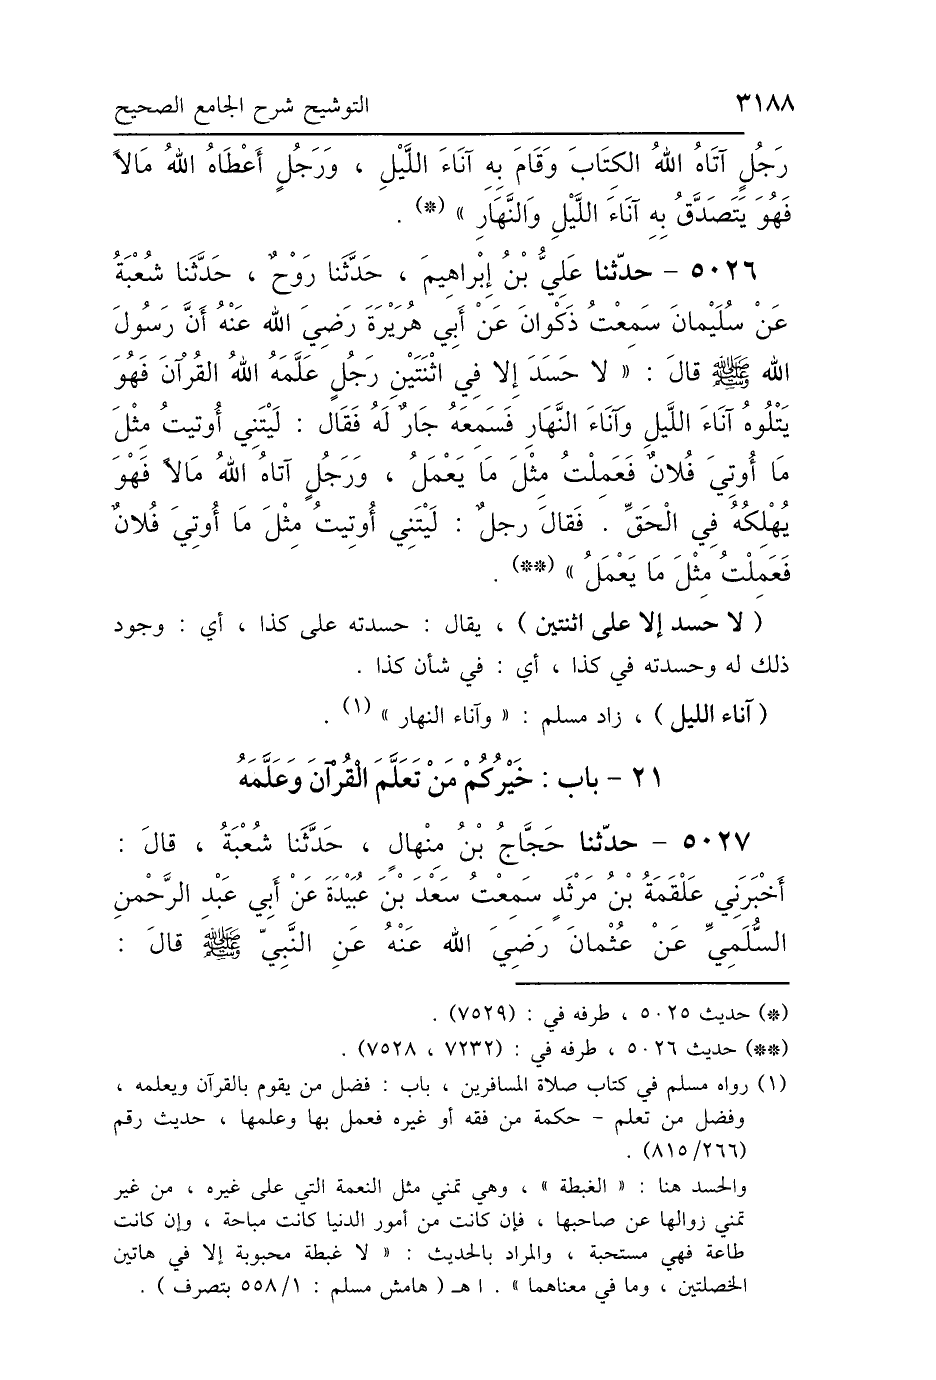 ٣١٨٨ التوشيح شرح الجامع الصحيح
رَجُلٍ آتَاهُ اللهُ الكِتَابَ وَقَامَ بِهِ آنَاءَ اللَّيْلِ ، وَرَجُلٍ أَعْطَاهُ اللهُ مَالاً
فَهُوَ يَتَصَدَّقُ بِهِ آنَاءَ اللَّيْلِ وَالنَّهَارِ » (*) .
٥٠٢٦ – حدّثنا عَلِيُّ بْنُ إِبْراهِيمَ ، حَدَّثَنا رَوْحٌ ، حَدَّثَنا شُعْبَةُ
عَنْ سُلَيْمانَ سَمِعْتُ ذَكْوانَ عَنْ أَبِي هُرَيْرَةَ رَضِيَ الله عَنْهُ أَنَّ رَسُولَ
الله ﷺ قالَ : « لا حَسَدَ إِلا فِي اثْنَتَيْنِ رَجُلٍ عَلَّمَهُ اللهُ القُرْآنَ فَهُوَ
يَتْلُوهُ آنَاءَ اللَّيلِ وَآنَاءَ النَّهارِ فَسَمِعَهُ جَارٌ لَهُ فَقَال : لَيْتَنِي أُوتِيتُ مِثْلَ
مَا أُوتِيَ فُلانٌ فَعَمِلْتُ مِثْلَ مَا يَعْمَلُ ، وَرَجُلٍ آتاهُ اللهُ مَالاً فَهْوَ
يُهْلِكُهُ فِي الْحَقِّ . فَقالَ رجلٌ : لَيْتَنِي أُوتِيتُ مِثْلَ مَا أُوتِيَ فُلانٌ
فَعَمِلْتُ مِثْلَ مَا يَعْمَلُ » (**) .
( لا حسد إلا على اثنتين ) ، يقال : حسدته على كذا ، أي : وجود
ذلك له وحسدته في كذا ، أي : في شأن كذا .
( آناء الليل ) ، زاد مسلم : « وآناء النهار » (١) .
٢١ – باب : خَيْرُكُمْ مَنْ تَعَلَّمَ الْقُرْآنَ وَعَلَّمَهُ
٥٠٢٧ – حدّثنا حَجَّاجُ بْنُ مِنْهالٍ ، حَدَّثَنا شُعْبَةُ ، قالَ :
أَخْبَرَنِي عَلْقَمَةُ بْنُ مَرْثَدٍ سَمِعْتُ سَعْدَ بْنَ عُبَيْدَةَ عَنْ أَبِي عَبْدِ الرَّحْمنِ
السُّلَمِيِّ عَنْ عُثْمانَ رَضِيَ الله عَنْهُ عَنِ النَّبِيّ ﷺ قالَ :
(*) حديث ٥٠٢٥ ، طرفه في : (٧٥٢٩) .
(**) حديث ٥٠٢٦ ، طرفه في : (٧٢٣٢ ، ٧٥٢٨) .
(١) رواه مسلم في كتاب صلاة المسافرين ، باب : فضل من يقوم بالقرآن ويعلمه ،
وفضل من تعلم – حكمة من فقه أو غيره فعمل بها وعلمها ، حديث رقم
(٨١٥/٢٦٦) .
والحسد هنا : « الغبطة » ، وهي تمني مثل النعمة التي على غيره ، من غير
تمني زوالها عن صاحبها ، فإن كانت من أمور الدنيا كانت مباحة ، وإن كانت
طاعة فهي مستحبة ، والمراد بالحديث : « لا غبطة محبوبة إلا في هاتين
الخصلتين ، وما في معناهما » . ا هـ ( هامش مسلم : ٥٥٨/١ بتصرف ) .